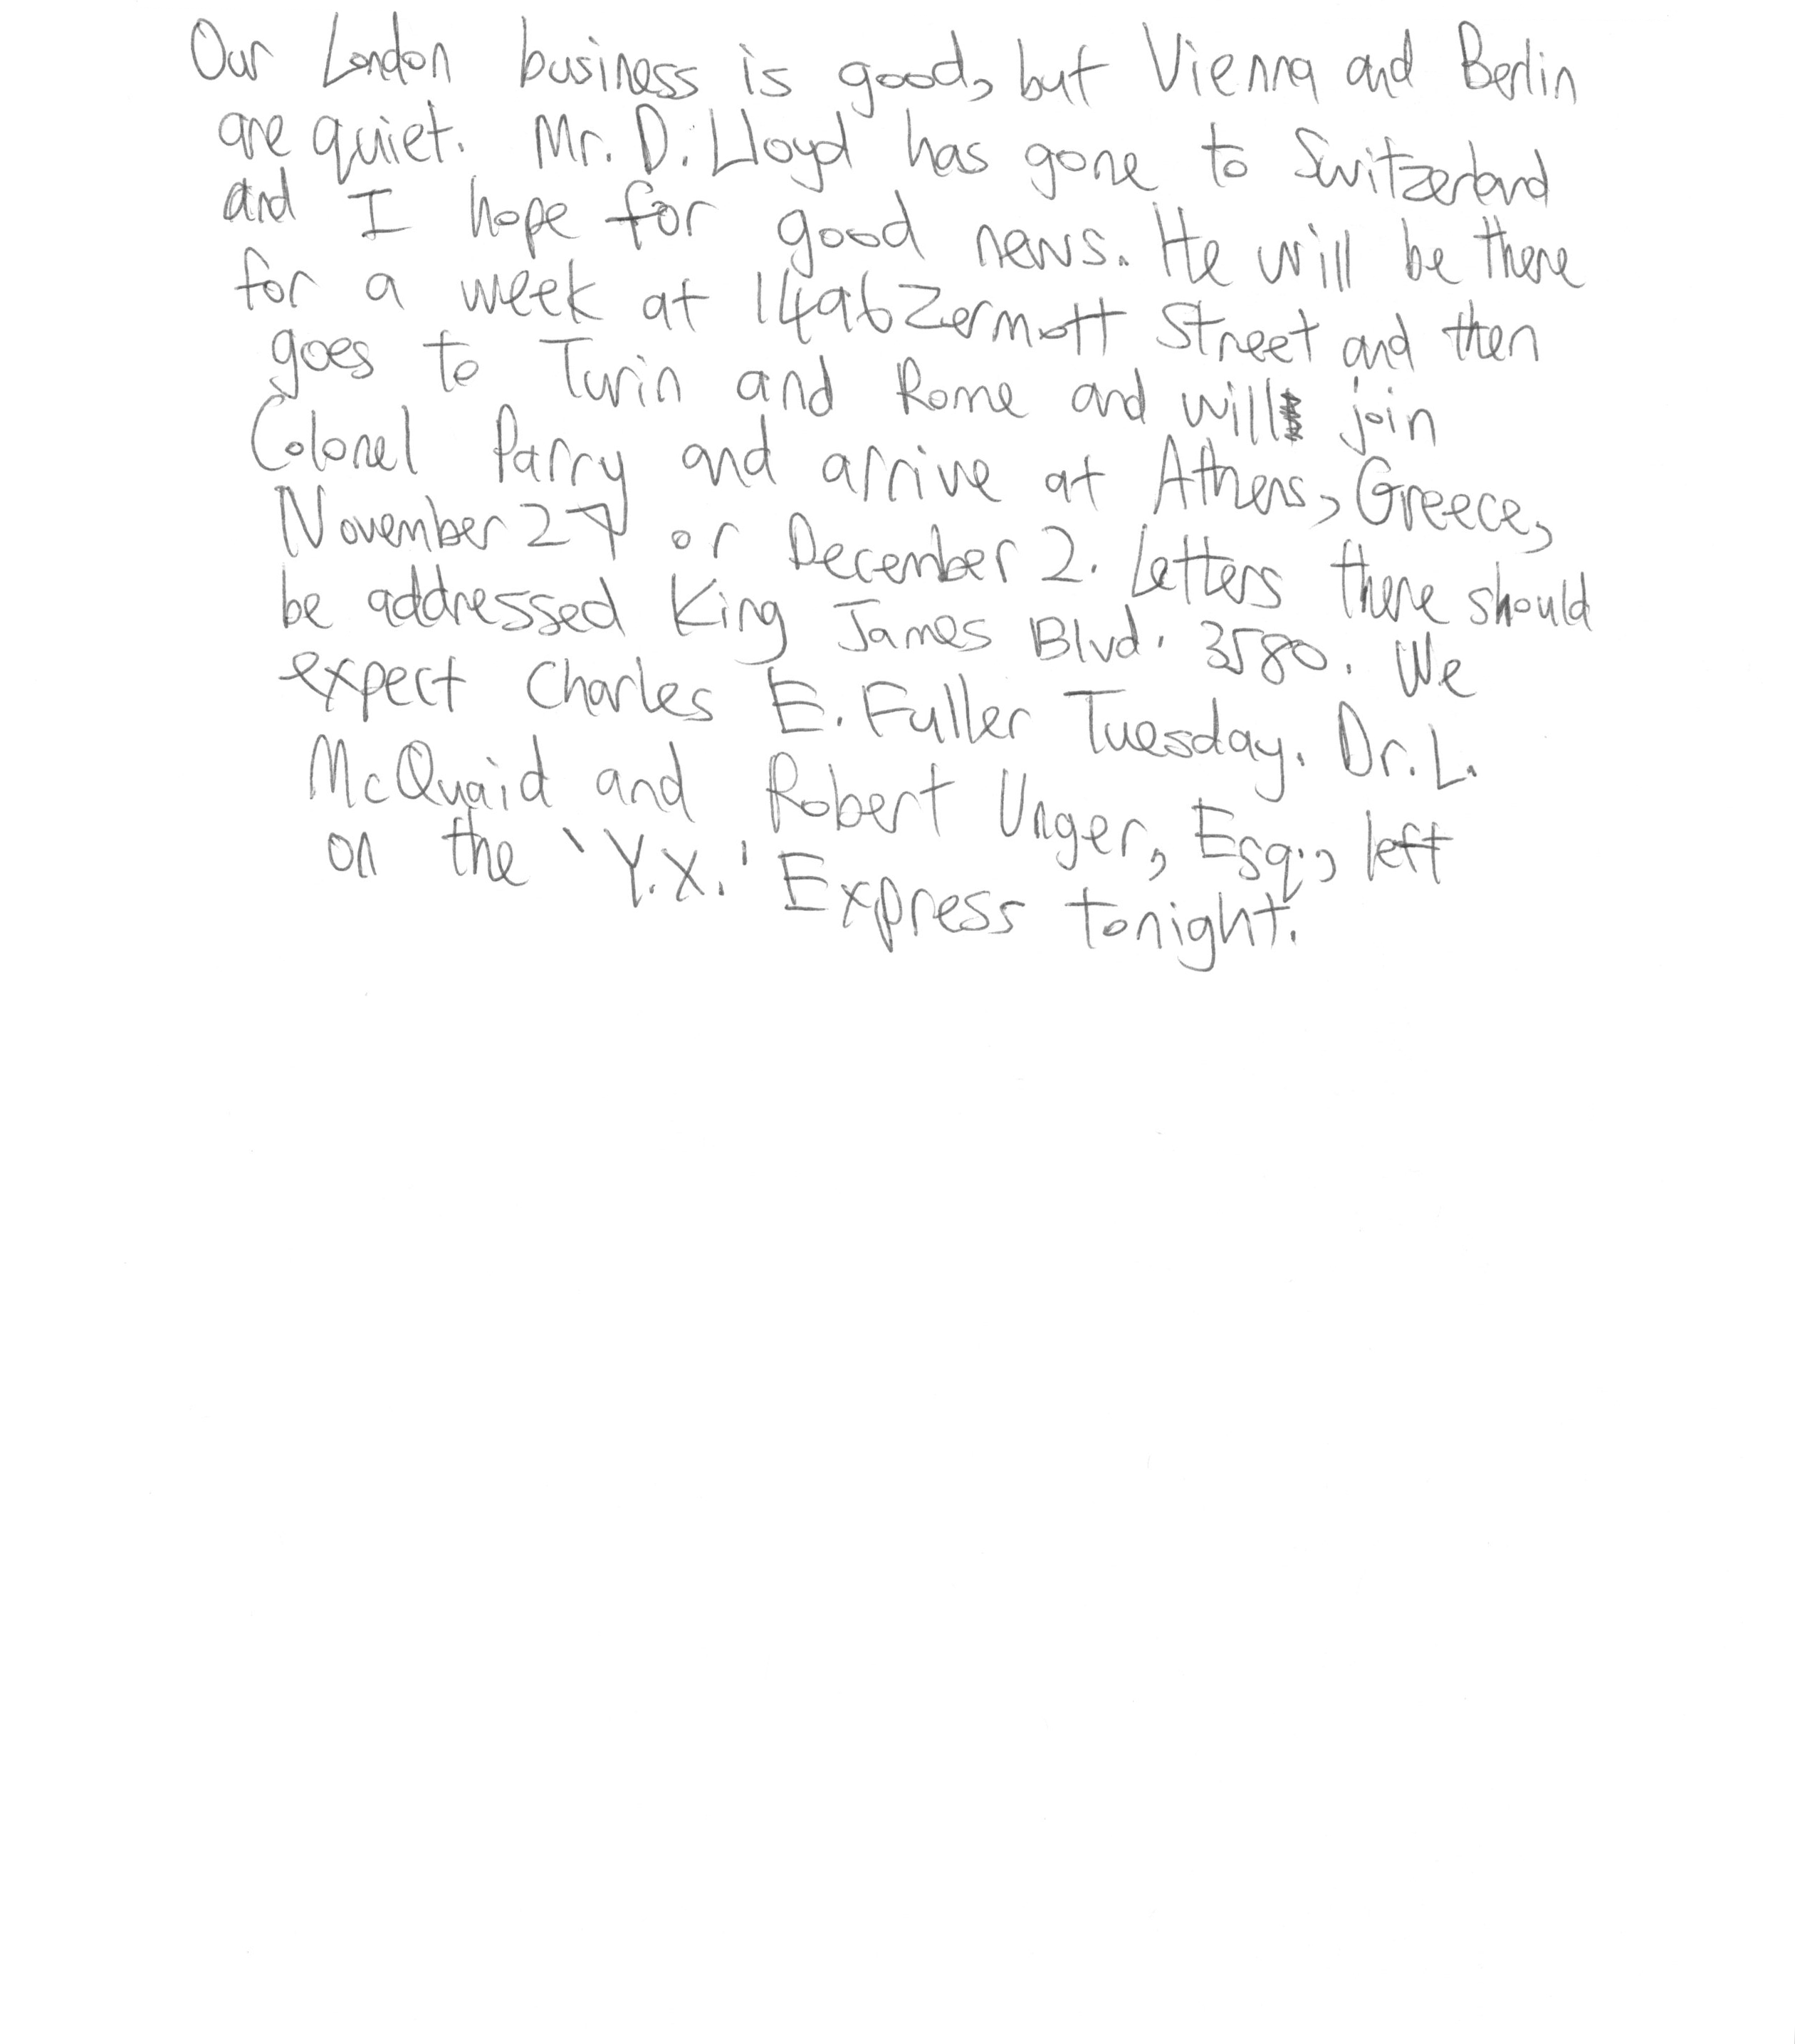 Our London business is good, but Vienna and Berlin
are quiet. Mr. D. Lloyd has gone to Switzerland
and I hope for good news. He will be there
for a week at 1496 Zermott Street and then
goes to Turin and Rome and will join
Colonel Parry and arrive at Athens, Greece,
November 27 or December 2. Letters there should
be addressed King James Blvd. 3580. We
expect Charles E. Fuller Tuesday. Dr. L.
McQuaid and Robert Unger, Esq., left
on the 'Y.X.' Express tonight.